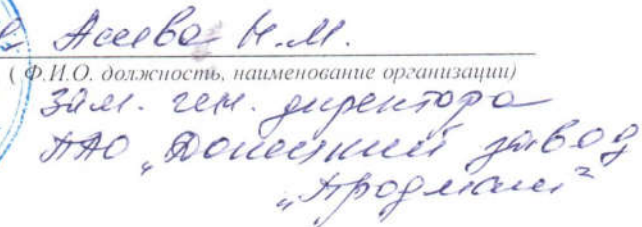 Асеева Н.М.
( Ф.И.О. должность, наименование организации)
зам. ген. директора
ПАО „Донецкий завод
„Продмаш"